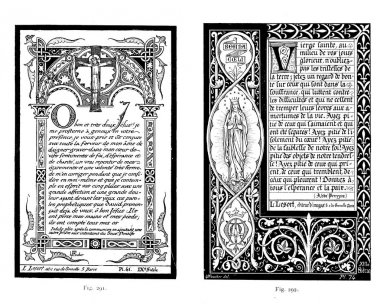 O bon et très doux Jésus! je
me prosterne à genoux en votre
présence, je vous prie et je conjure
avec toute la ferveur de mon âme de
daigner graver dans mon cœur de
vifs sentiments de foi, d'espérance et
de charité, un vrai repentir de mes
égarements et une volonté très ferme
de m'en corriger pendant que je consi
dère en moi-même et que je contemple
en esprit vos cinq plaies avec une
grande affection et une grande dou
leur, ayant devant les yeux ces pa
roles prophétiques que David prononçait
déjà de vous, ô bon Jésus: Ils
ont percé mes mains et mes pieds;
ils ont compté tous mes os
L. Lesort
Paris
Pl. 61.
IXe Siècle
Fig. 291.
DOMINA
CŒLI
Vierge sainte, au
milieu de vos jours
glorieux, n'oubliez
pas les tristesses de
la terre; jetez un regard de bon
té sur ceux qui sont dans la
souffrance, qui luttent contre
les difficultés et qui ne cessent
de tremper leurs lèvres aux a
mertumes de la vie. Ayez pi
tié de ceux qui s'aimaient et qui
ont été séparés! Ayez pitié de l'i
solement du cœur! Ayez pitié
de la faiblesse de notre foi! Ayez
pitié des objets de notre tendres
se! Ayez pitié de ceux qui pri
ent, de ceux qui tremblent, de
ceux qui pleurent! Donnez à
tous l'espérance et la paix.
(Abbé Perreyve)
L. Lesort,
Pl. 74
Fig. 292.